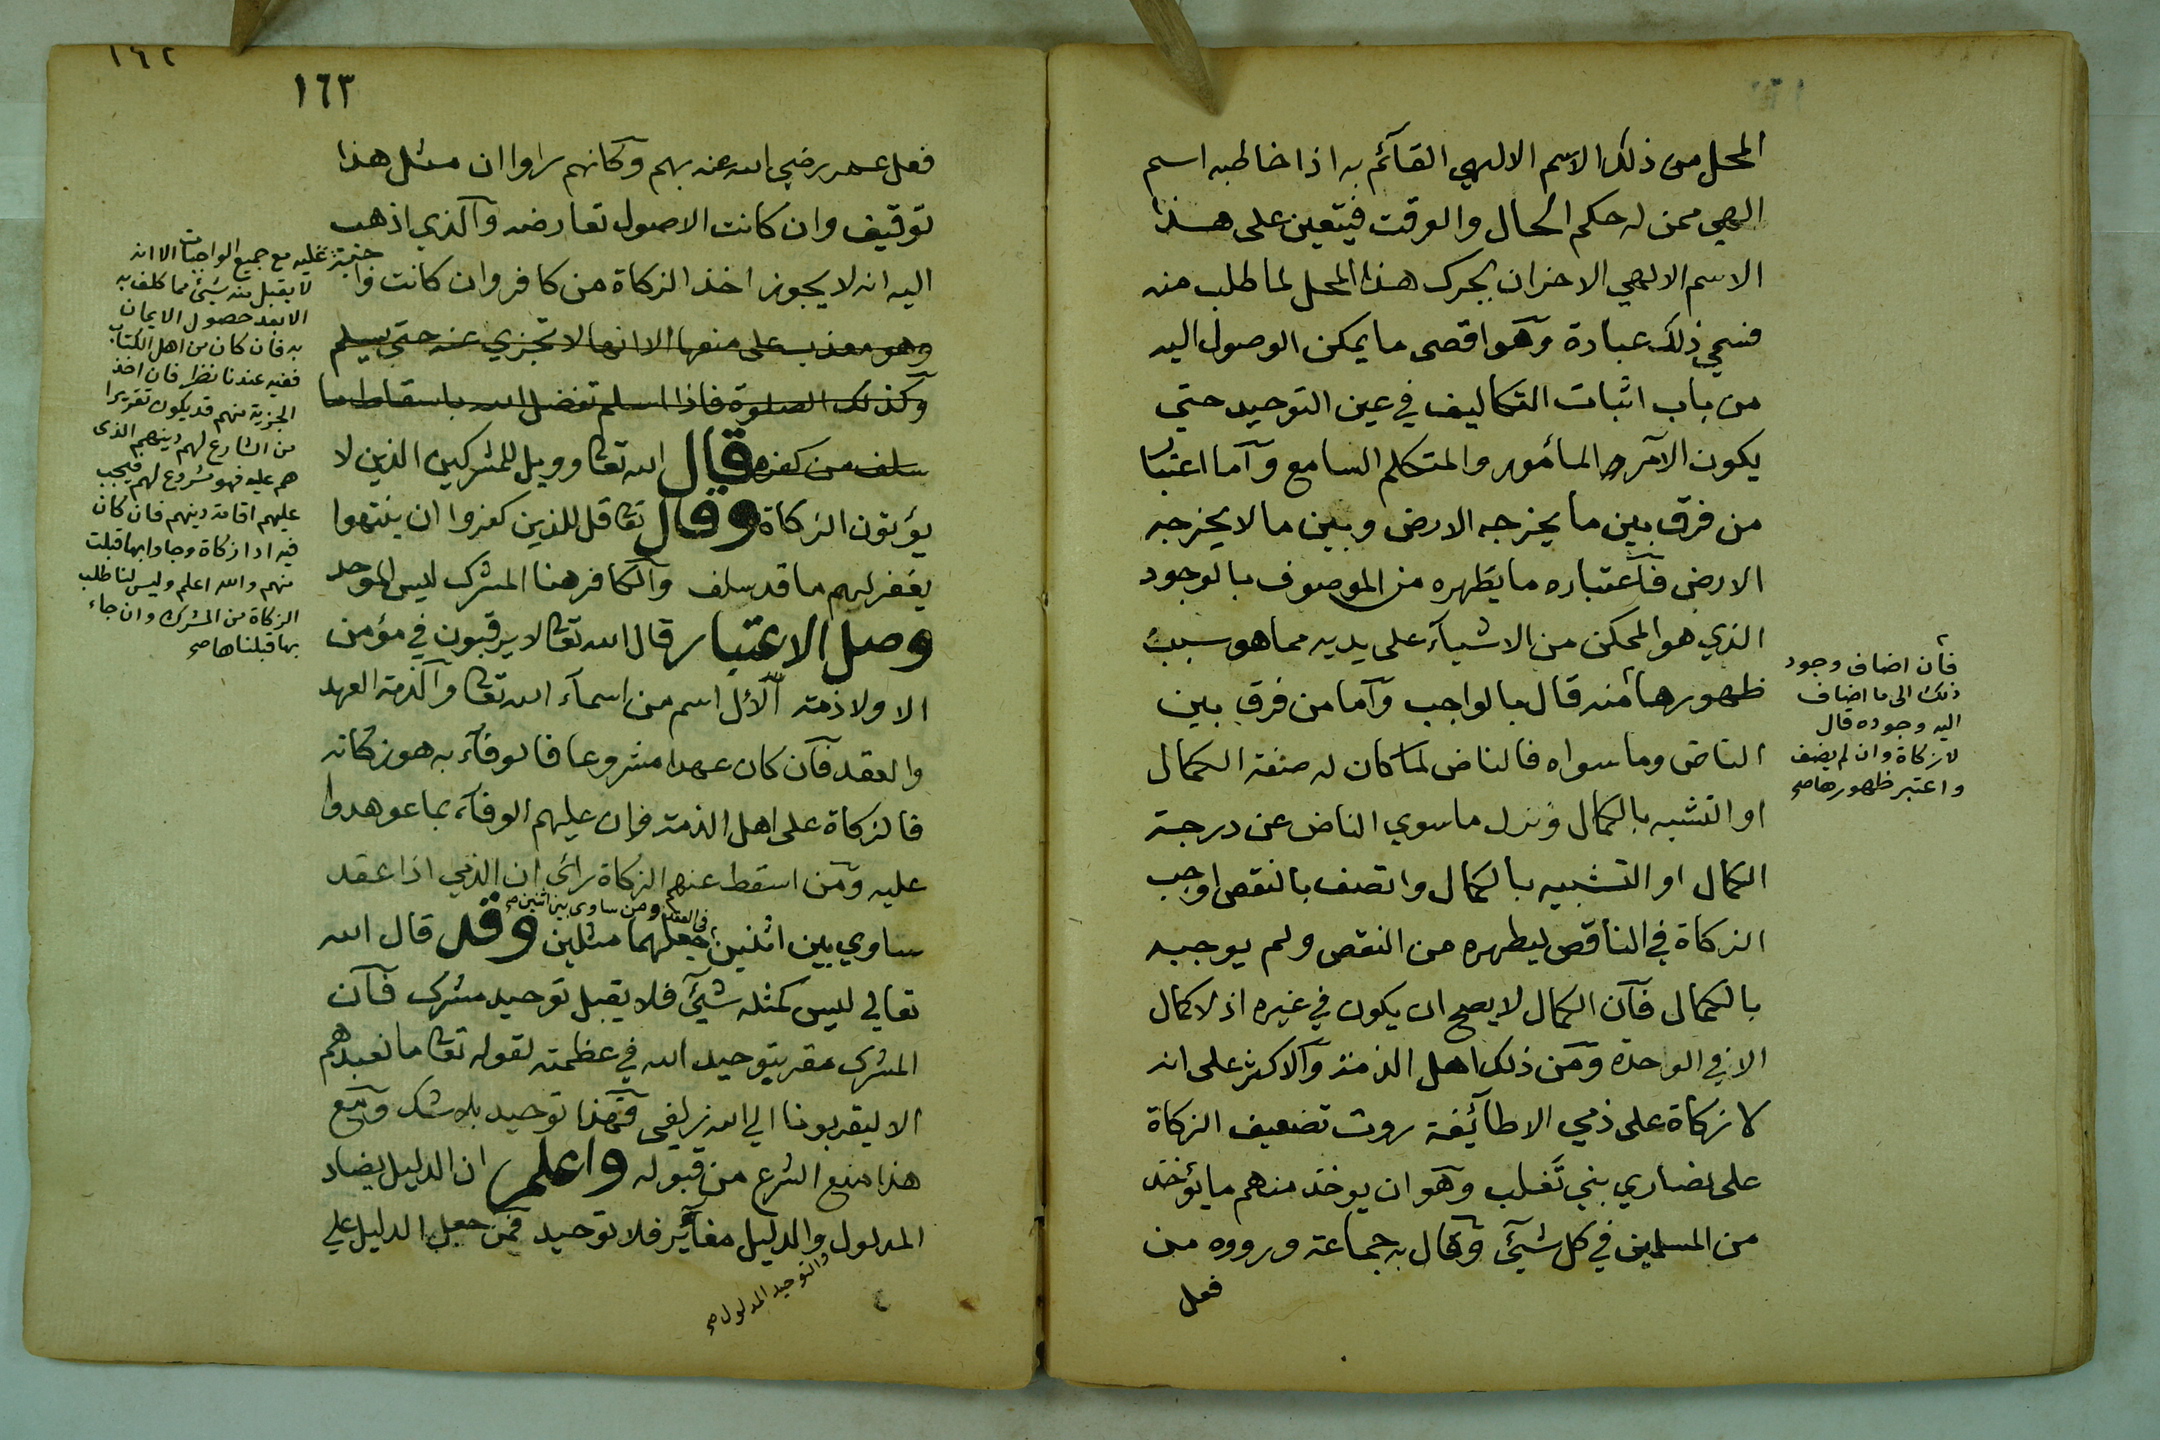 المحل من ذلك الاسم الالهي القآئم به اذا خاطبه اسم
الهي ممن له حكم الحال والوقت فيتعين على هذا
الاسم الالهي الاخر ان يحرك هذا المحل لما طلب منه
فسمي ذلك عبادة وهو اقصى ما يمكن الوصول اليه
من باب اثبات التكاليف في عين التوحيد حتي
يكون الآمر المأمور والمتكلم السامع وآما اعتبار
من فرق بين ما يخرجه الارض وبين ما لا يخرجه
الارض فآعتباره ما يظهره من الموصوف بالوجود
الذي هو الممكن من الاشيآء على يديه مما هو سبب
ظهورها منه قال بالواجب وآما من فرق بين
الناض وما سواه فالناض لما كان له صفة الكمال
او التشبه بالكمال ونزل ما سوي الناض عن درجة
الكمال او التشبيه بالكمال واتصف بالنقص اوجب
الزكاة في الناقص ليطهره من النقص ولم يوجبه
بالكمال فآن الكمال لا يصح ان يكون في غيره اذ لا كمال
الا في الواحدة ومن ذلك اهل الذمة وآلاكثر على انه
لا زكاة على ذمي الا طآئفة روت تضعيف الزكاة
على نصاري بني تغلب وهو ان يوخذ منهم ما يؤخذ
من المسلمين في كل شيئ وقال به جماعة ورووه من
فعل
فأن اضاف وجود
ذلك الى ما اضاف
اليه وجوده قال
لا زكاة وان لم يضف
واعتبر ظهورها صح
١٦٢
١٦٣
فعل عمر رضي الله عنه بهم وكانهم راوا ان مثل هذا
توقيف وان كانت الاصول تعارضه وآلذي اذهب
اليه انه لا يجوز اخذ الزكاة من كافر وان كانت وا
وهو معذب على منعها الا انها لا تجزي عنه حتي يسلم
وكذلك الصلوة فاذا اسلم تفضل الله باسقاط ما
سلف من كفره قال الله تعا وويل للمشركين الذين لا
يؤتون الزكاة وقال تعا قل للذين كفروا ان ينتهوا
يغفر لهم ما قد سلف وآلكافر هنا المشرك ليس الموحد
وصل الاعتبار قال الله تعا لا يرقبون في مؤمن
الا ولا ذمة آلألّ اسم من اسمآء الله تعا وآلذمة العهد
والعقد فآن كان عهدا مشروعا فالوفآء به هو زكاته
فالزكاة على اهل الذمة فإن عليهم الوفآء بما عوهدوا
عليه ومن اسقط عنهم الزكاة رائ ان الذمي اذا عقد
في العقد ومن ساوى بين اثنين صح
ساوي بين اثنين جعلهما مثلين وقد قال الله
تعالي ليس كمثله شيئ فلا يقبل توحيد مشرك فآن
المشرك مقر بتوحيد الله في عظمته لقوله تعا ما نعبدهم
الا ليقربونا الي الله زلفى فهذا توحيد بلا شك ومع
هذا منع الشرع من قبوله واعلم ان الدليل يضاد
المدلول والدليل مغآير فلا توحيد فمن جعل الدليل علي
والتوحيد المدلول صح
جبة عليه مع جميع الواجبات الا انه
لا يقبل منه شيئ مما كلف به
الا بعد حصول الايمان
به فان كان من اهل الكتاب
ففيه عندنا نظر فان اخذ
الجزية منهم قد يكون تقريرا
من الشارع لهم دينهم الذى
هم عليه فهو مشروع لهم فيجب
عليهم اقامة دينهم فان كان
فيه ادا زكاة وجاوا بها قبلت
منهم والله اعلم وليس لنا طلب
الزكاة من المشرك وان جاء
بها قبلناها صح